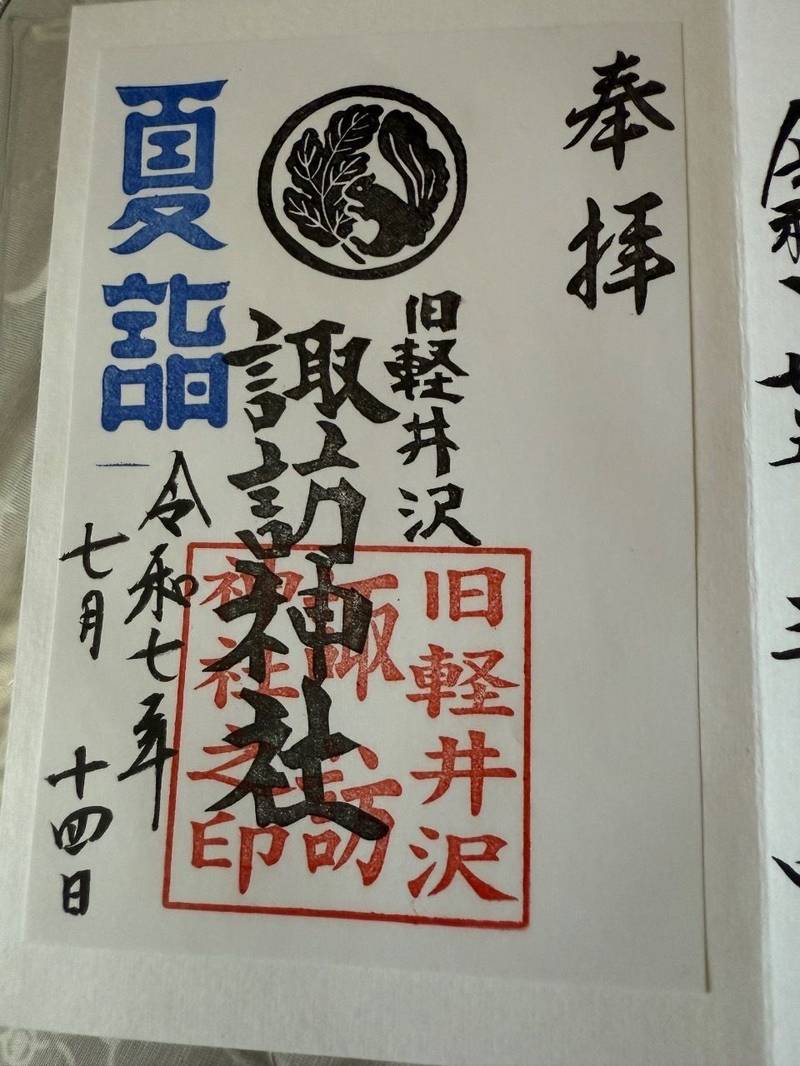 奉拝
旧軽井沢
諏訪神社
旧軽井沢
諏訪
神社之印
夏詣
令和七年
七月十四日